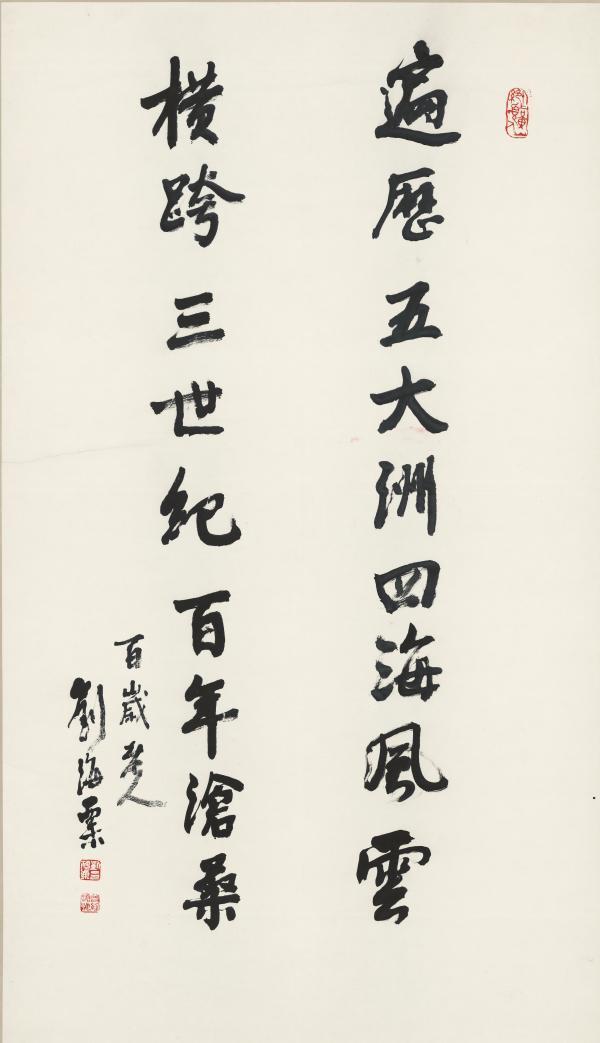 遍歷五大洲四海風雲
橫跨三世紀百年滄桑
百歲老人
劉海粟